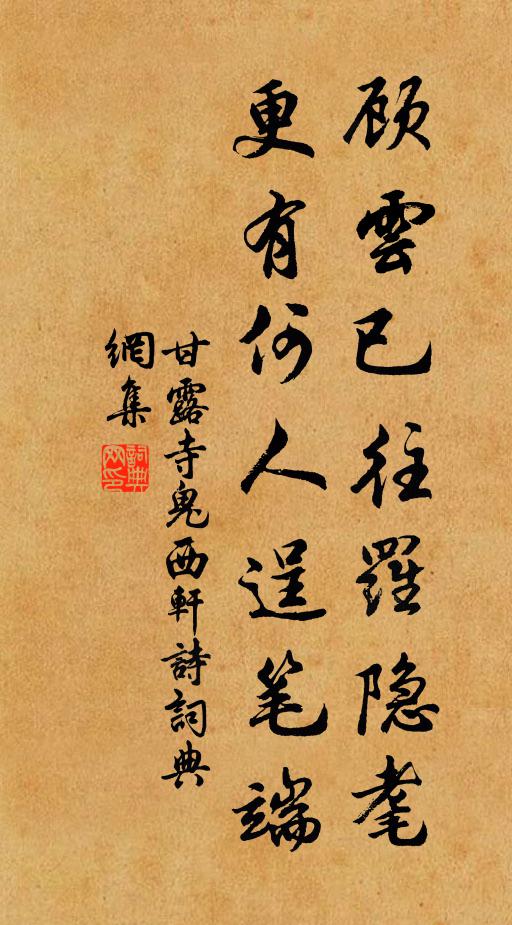 顾雲已往羅隐耄
更有何人逞笔端
甘露寺鬼西軒詩詞典
網集
詞典
网印